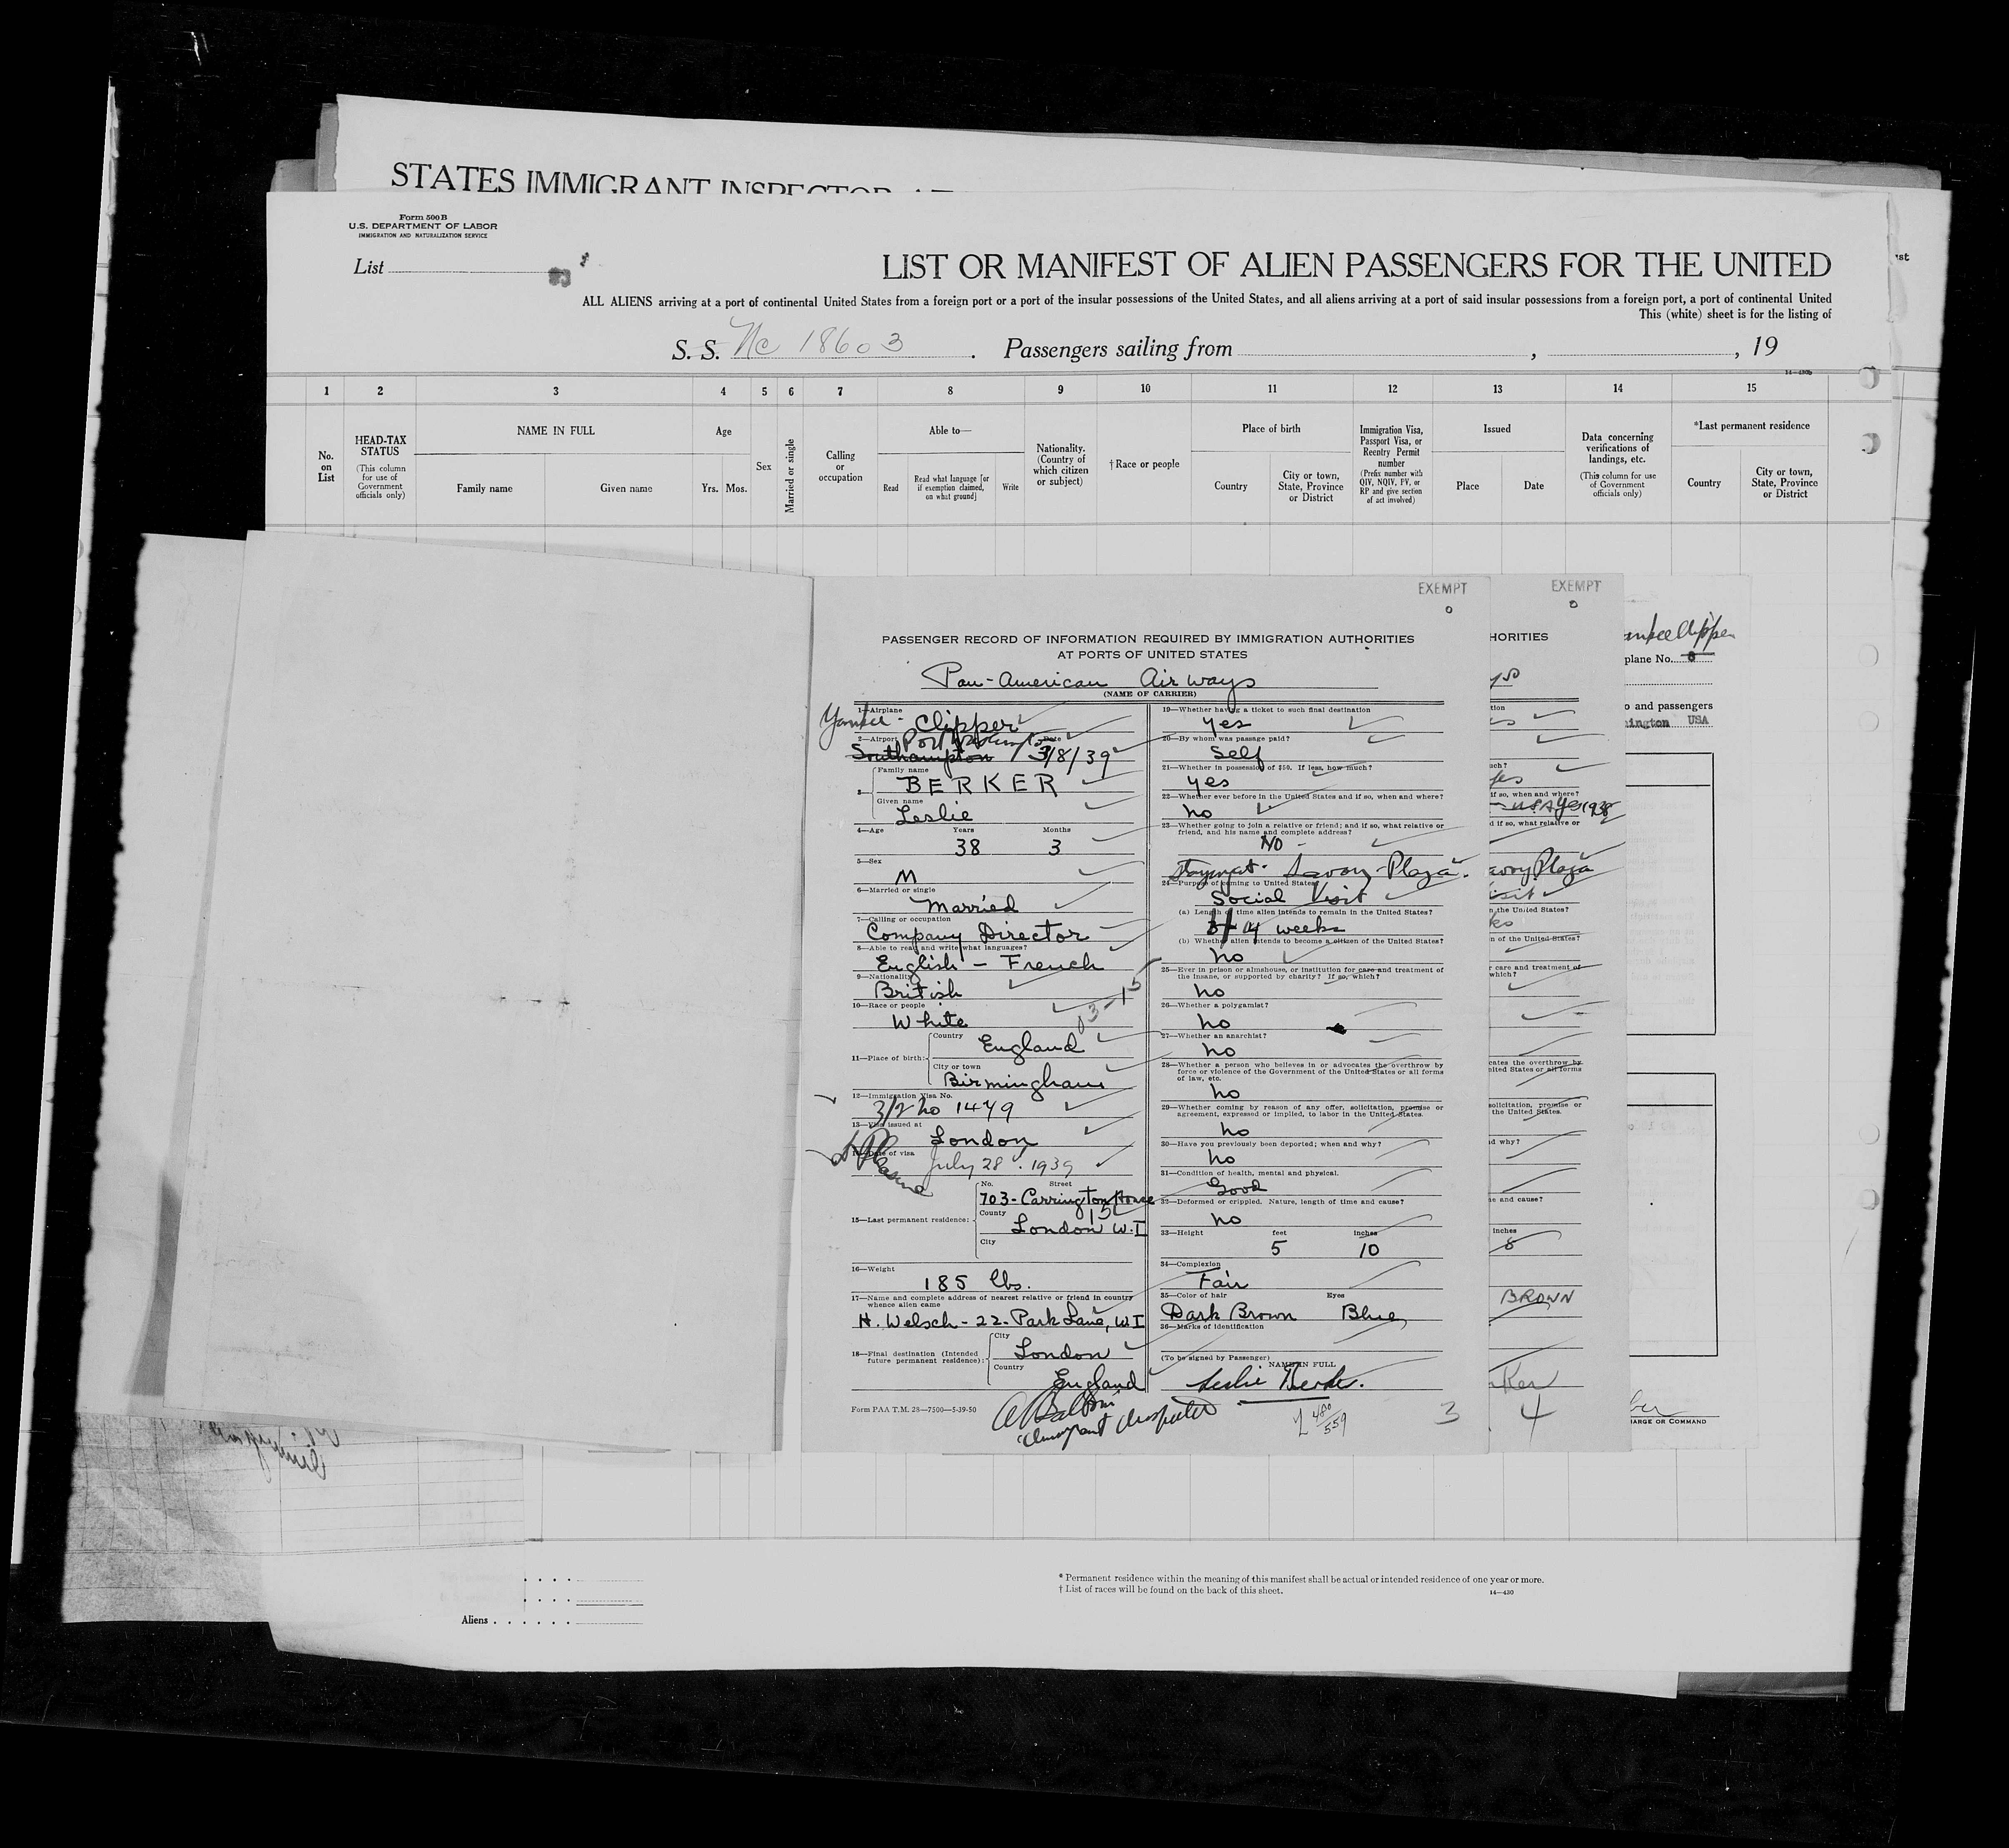 STATES IMMIGRANT INSPECTOR AT
Form 500 B
U.S. DEPARTMENT OF LABOR
IMMIGRATION AND NATURALIZATION SERVICE
List
LIST OR MANIFEST OF ALIEN PASSENGERS FOR THE UNITED
ALL ALIENS arriving at a port of continental United States from a foreign port or a port of the insular possessions of the United States, and all aliens arriving at a port of said insular possessions from a foreign port, a port of continental United
This (white) sheet is for the listing of
S. S. Nc 18603 . Passengers sailing from , , 19
14—430b
1 2 3 4 5 6 7 8 9 10 11 12 13 14 15
No. on List
HEAD-TAX STATUS
(This column for use of Government officials only)
NAME IN FULL
Family name Given name
Age
Yrs. Mos.
Sex
Married or single
Calling or occupation
Able to—
Read
Read what language [or if exemption claimed, on what ground]
Write
Nationality. (Country of which citizen or subject)
†Race or people
Place of birth
Country
City or town, State, Province or District
Immigration Visa, Passport Visa, or Reentry Permit number
(Prefix number with QIV, NQIV, PV, or RP and give section of act involved)
Issued
Place Date
Data concerning verifications of landings, etc.
(This column for use of Government officials only)
*Last permanent residence
Country
City or town, State, Province or District
EXEMPT
0
PASSENGER RECORD OF INFORMATION REQUIRED BY IMMIGRATION AUTHORITIES
AT PORTS OF UNITED STATES
Pan-American Airways
(NAME OF CARRIER)
1—Airplane
Yankee - Clipper
2—Airport Date
Southampton 3/8/39
3
Family name
BERKER
Given name
Leslie
4—Age Years Months
38 3
5—Sex
M
6—Married or single
Married
7—Calling or occupation
Company Director
8—Able to read and write what languages?
English - French
9—Nationality
British
10—Race or people
White
11—Place of birth:
Country
England
City or town
Birmingham
12—Immigration Visa No.
3/2 No 1479
13—Visa issued at
London
14—Date of visa
July 28. 1939
15—Last permanent residence:
No. Street
703 - Carrington House
County
London W.I
City
16—Weight
185 lbs.
17—Name and complete address of nearest relative or friend in country
whence alien came
H. Welsch - 22 - Park Lane, W.I
18—Final destination (Intended
future permanent residence):
City
London
Country
England
Form PAA T.M. 28—7500—5-39-50
19—Whether having a ticket to such final destination
Yes
20—By whom was passage paid?
Self
21—Whether in possession of $50. If less, how much?
yes
22—Whether ever before in the United States and if so, when and where?
no
23—Whether going to join a relative or friend; and if so, what relative or
friend, and his name and complete address?
NO -
Savoy-Plaza.
24—Purpose of coming to United States
Social Visit
(a) Length of time alien intends to remain in the United States?
4 weeks
(b) Whether alien intends to become a citizen of the United States?
no
25—Ever in prison or almshouse, or institution for care and treatment of
the insane, or supported by charity? If so, which?
no
26—Whether a polygamist?
no
27—Whether an anarchist?
no
28—Whether a person who believes in or advocates the overthrow by
force or violence of the Government of the United States or all forms
of law, etc.
no
29—Whether coming by reason of any offer, solicitation, promise or
agreement, expressed or implied, to labor in the United States.
no
30—Have you previously been deported; when and why?
no
31—Condition of health, mental and physical.
Good
32—Deformed or crippled. Nature, length of time and cause?
no
33—Height feet inches
5 10
34—Complexion
Fair
35—Color of hair Eyes
Dark Brown Blue
36—Marks of identification
(To be signed by Passenger)
NAME IN FULL
Leslie Berker.
3
EXEMPT
0
HORITIES
if so, when and where?
1938
d if so, what relative or
avoy Plaza
n the United States?
n of the United States?
r care and treatment of
which?
cates the overthrow by
nited States or all forms
solicitation, promise or
the United States.
d why?
ne and cause?
inches
8
BROWN
4
plane No.
o and passengers
ington USA
HARGE OR COMMAND
* Permanent residence within the meaning of this manifest shall be actual or intended residence of one year or more.
† List of races will be found on the back of this sheet.
14—430
Aliens